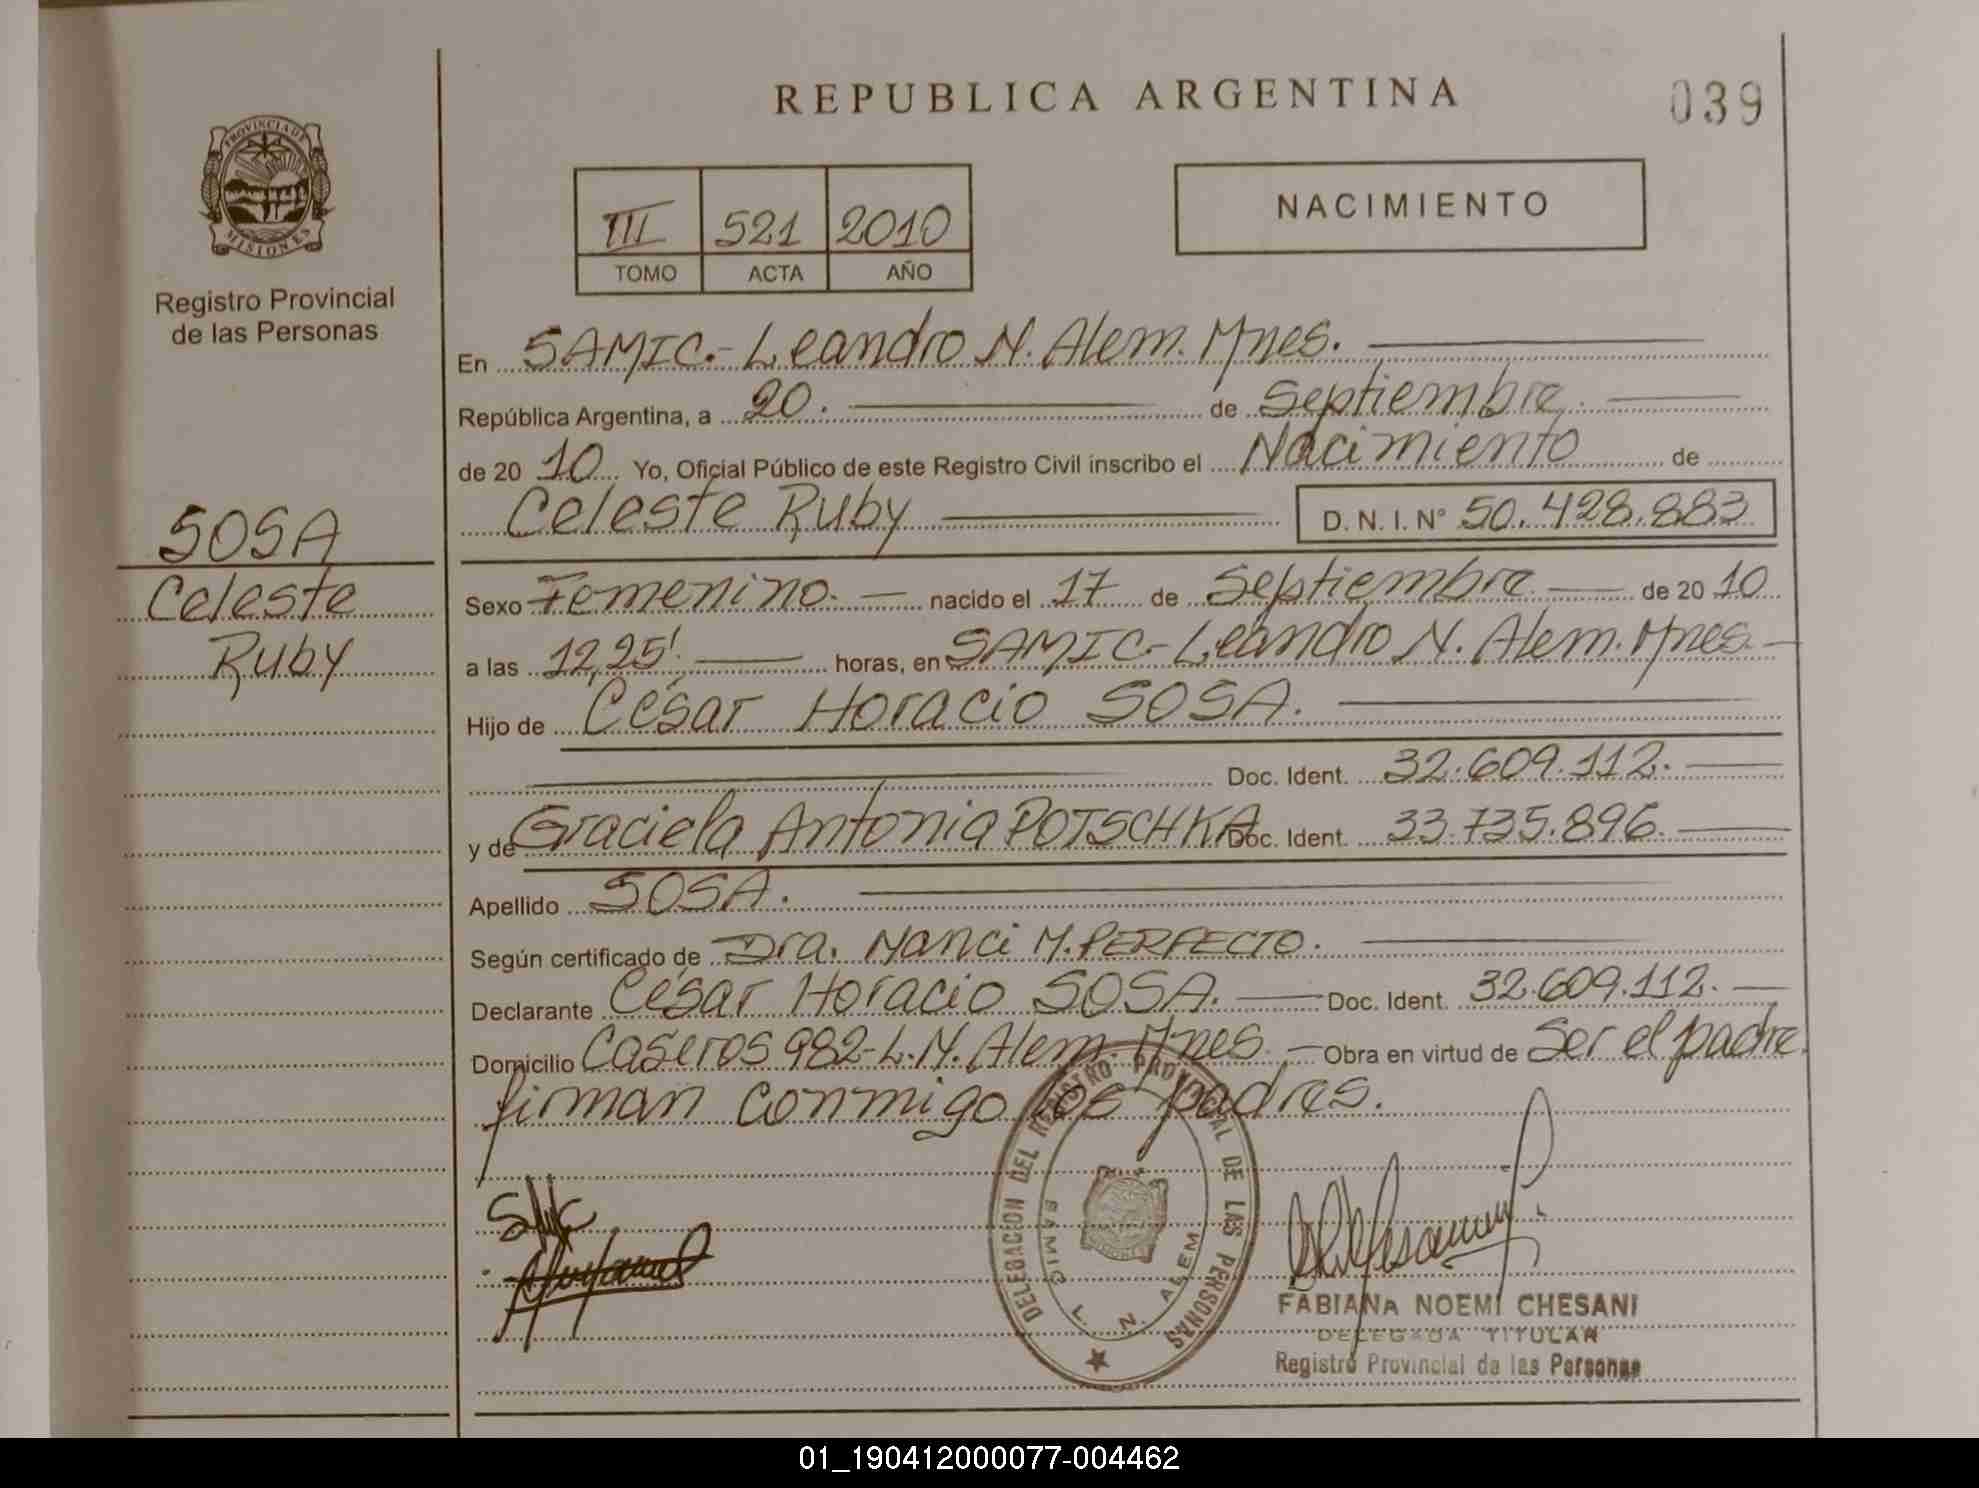 REPUBLICA ARGENTINA
039
PROVINCIA DE
MISIONES
Registro Provincial
de las Personas
III 521 2010
TOMO ACTA AÑO
NACIMIENTO
En SAMIC.- Leandro N. Alem. Mnes.
República Argentina, a 20. de Septiembre
de 20 10 Yo, Oficial Público de este Registro Civil inscribo el Nacimiento de
Celeste Ruby D. N. I. N° 50.428.883
SOSA
Celeste
Ruby
Sexo Femenino. nacido el 17 de Septiembre de 20 10
a las 12,25'. horas, en SAMIC.- Leandro N. Alem. Mnes.
Hijo de César Horacio SOSA.
Doc. Ident. 32.609.112.
y de Graciela Antonia POTSCHKA Doc. Ident. 33.735.896.
Apellido SOSA.
Según certificado de Dra. Nanci M. PERFECTO.
Declarante César Horacio SOSA. Doc. Ident. 32.609.112.
Domicilio Caseros 982-L.N. Alem. Mnes. Obra en virtud de Ser el padre.
firman conmigo los padres.
DELEGACION DEL REGISTRO PROVINCIAL DE LAS PERSONAS
SAMIC L. N. ALEM
FABIANA NOEMI CHESANI
DELEGADA TITULAR
Registro Provincial de las Personas
01_190412000077-004462